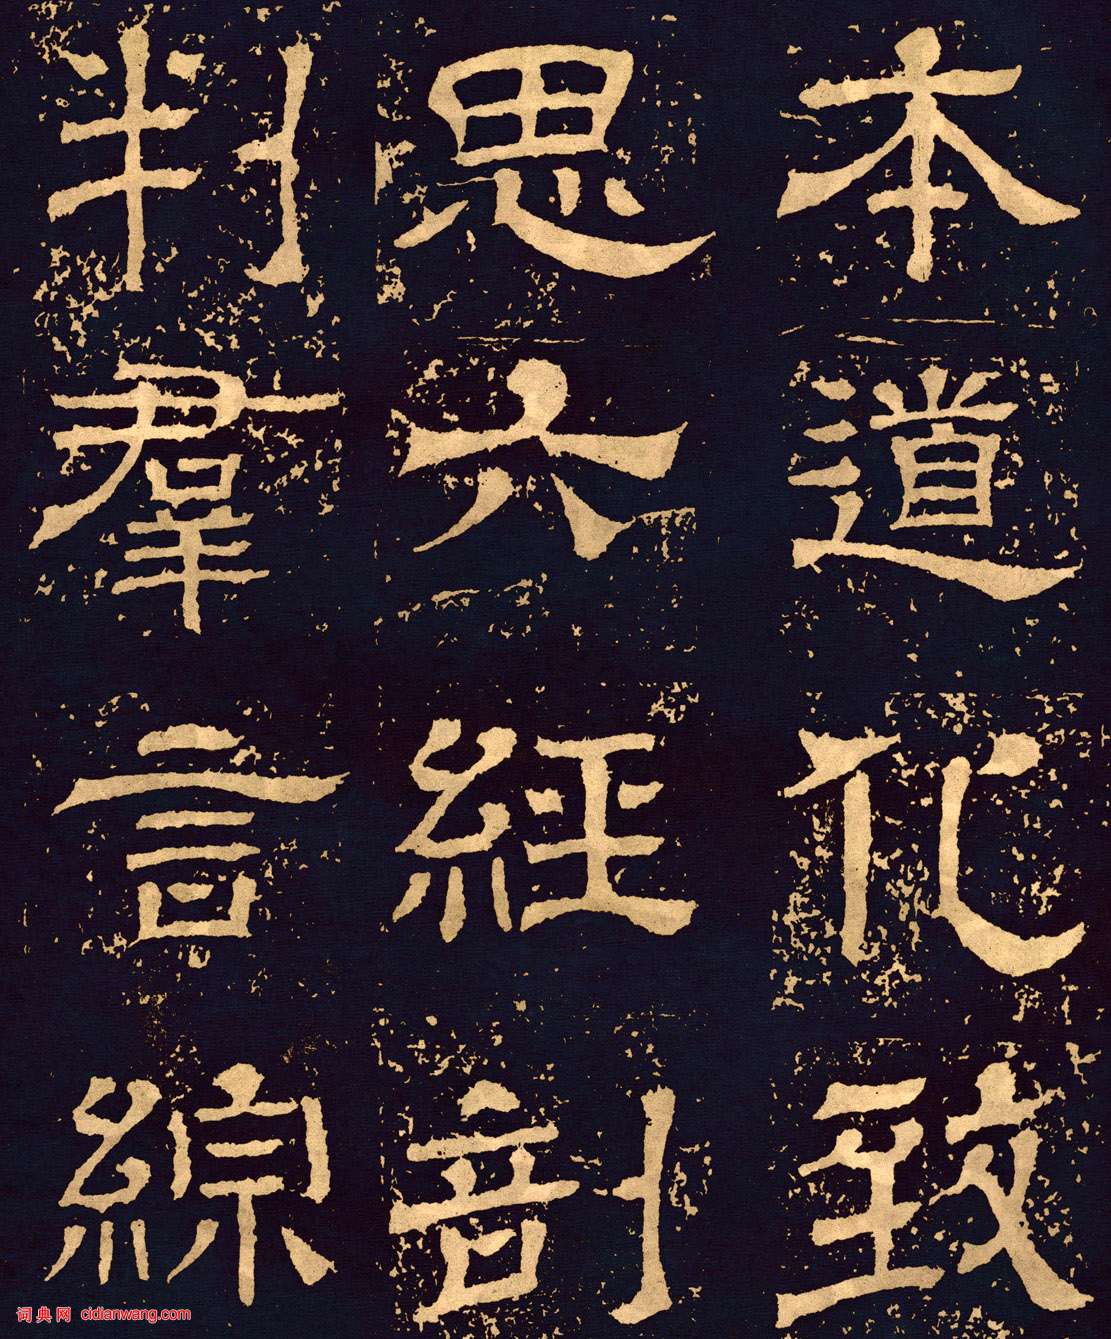 本道化致
思六經剖
判羣言綜
词典网 cidianwang.com